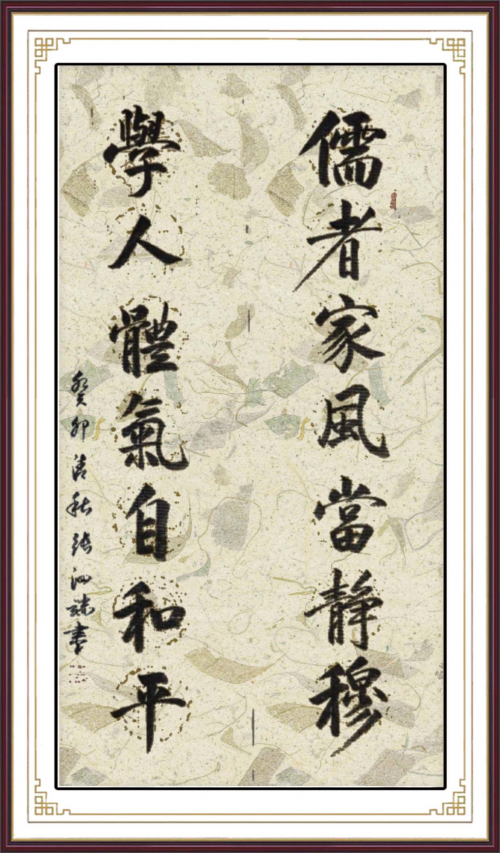 儒者家風當静穆
學人體氣自和平
癸卯清秋張泗瑞書